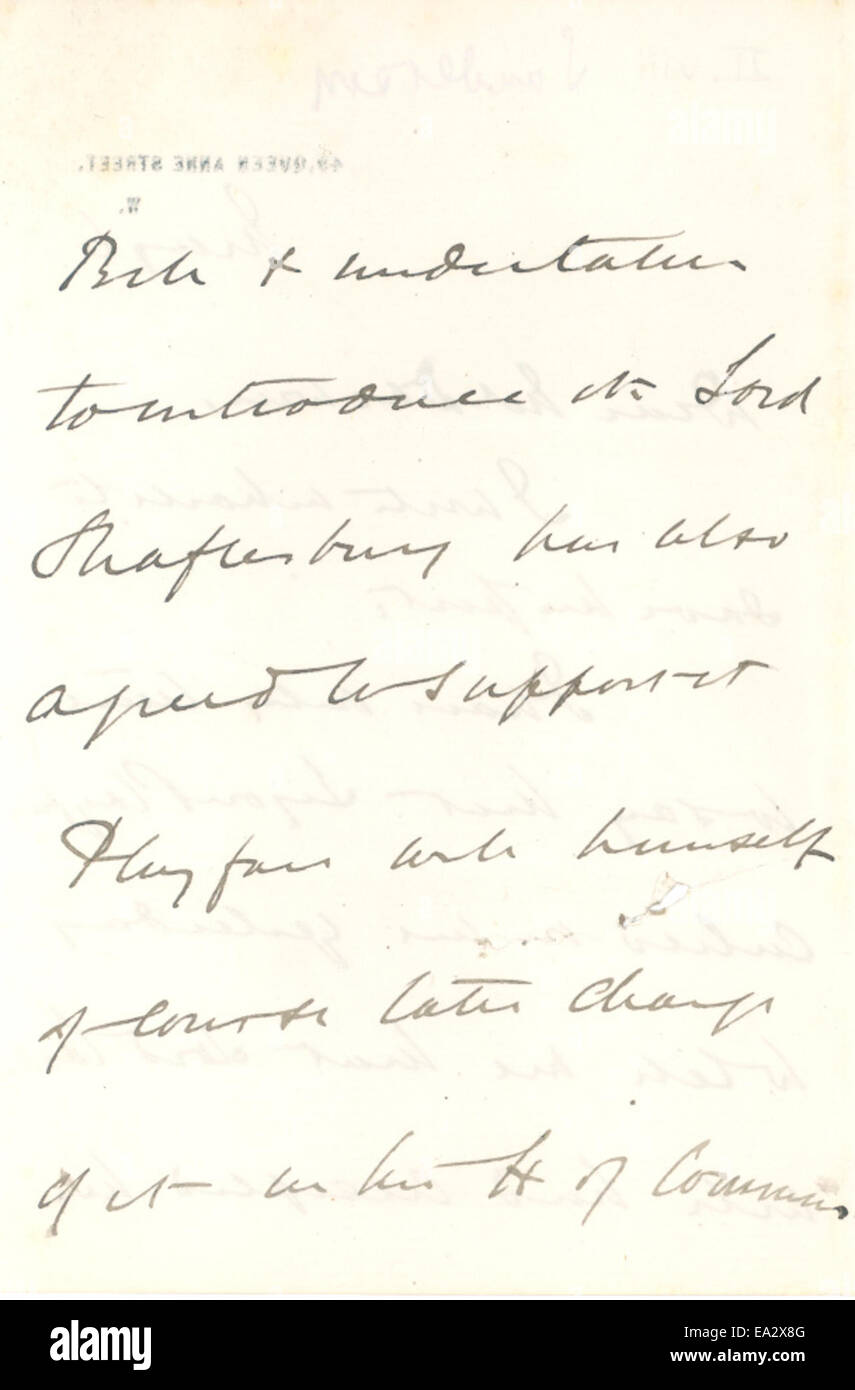 Bill & undertaken
to introduce it. Lord
Shaftesbury has also
agreed to support it
Playfair will himself
of course take charge
of it in the H of Commons
49, QUEEN ANNE STREET,
W.
alamy
Image ID: EA2X8G
www.alamy.com